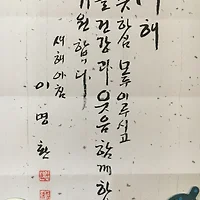 해
뜻하심 모두 이루시고
늘 건강과 웃음 함께 하
기원합니다
새해아침
이명환